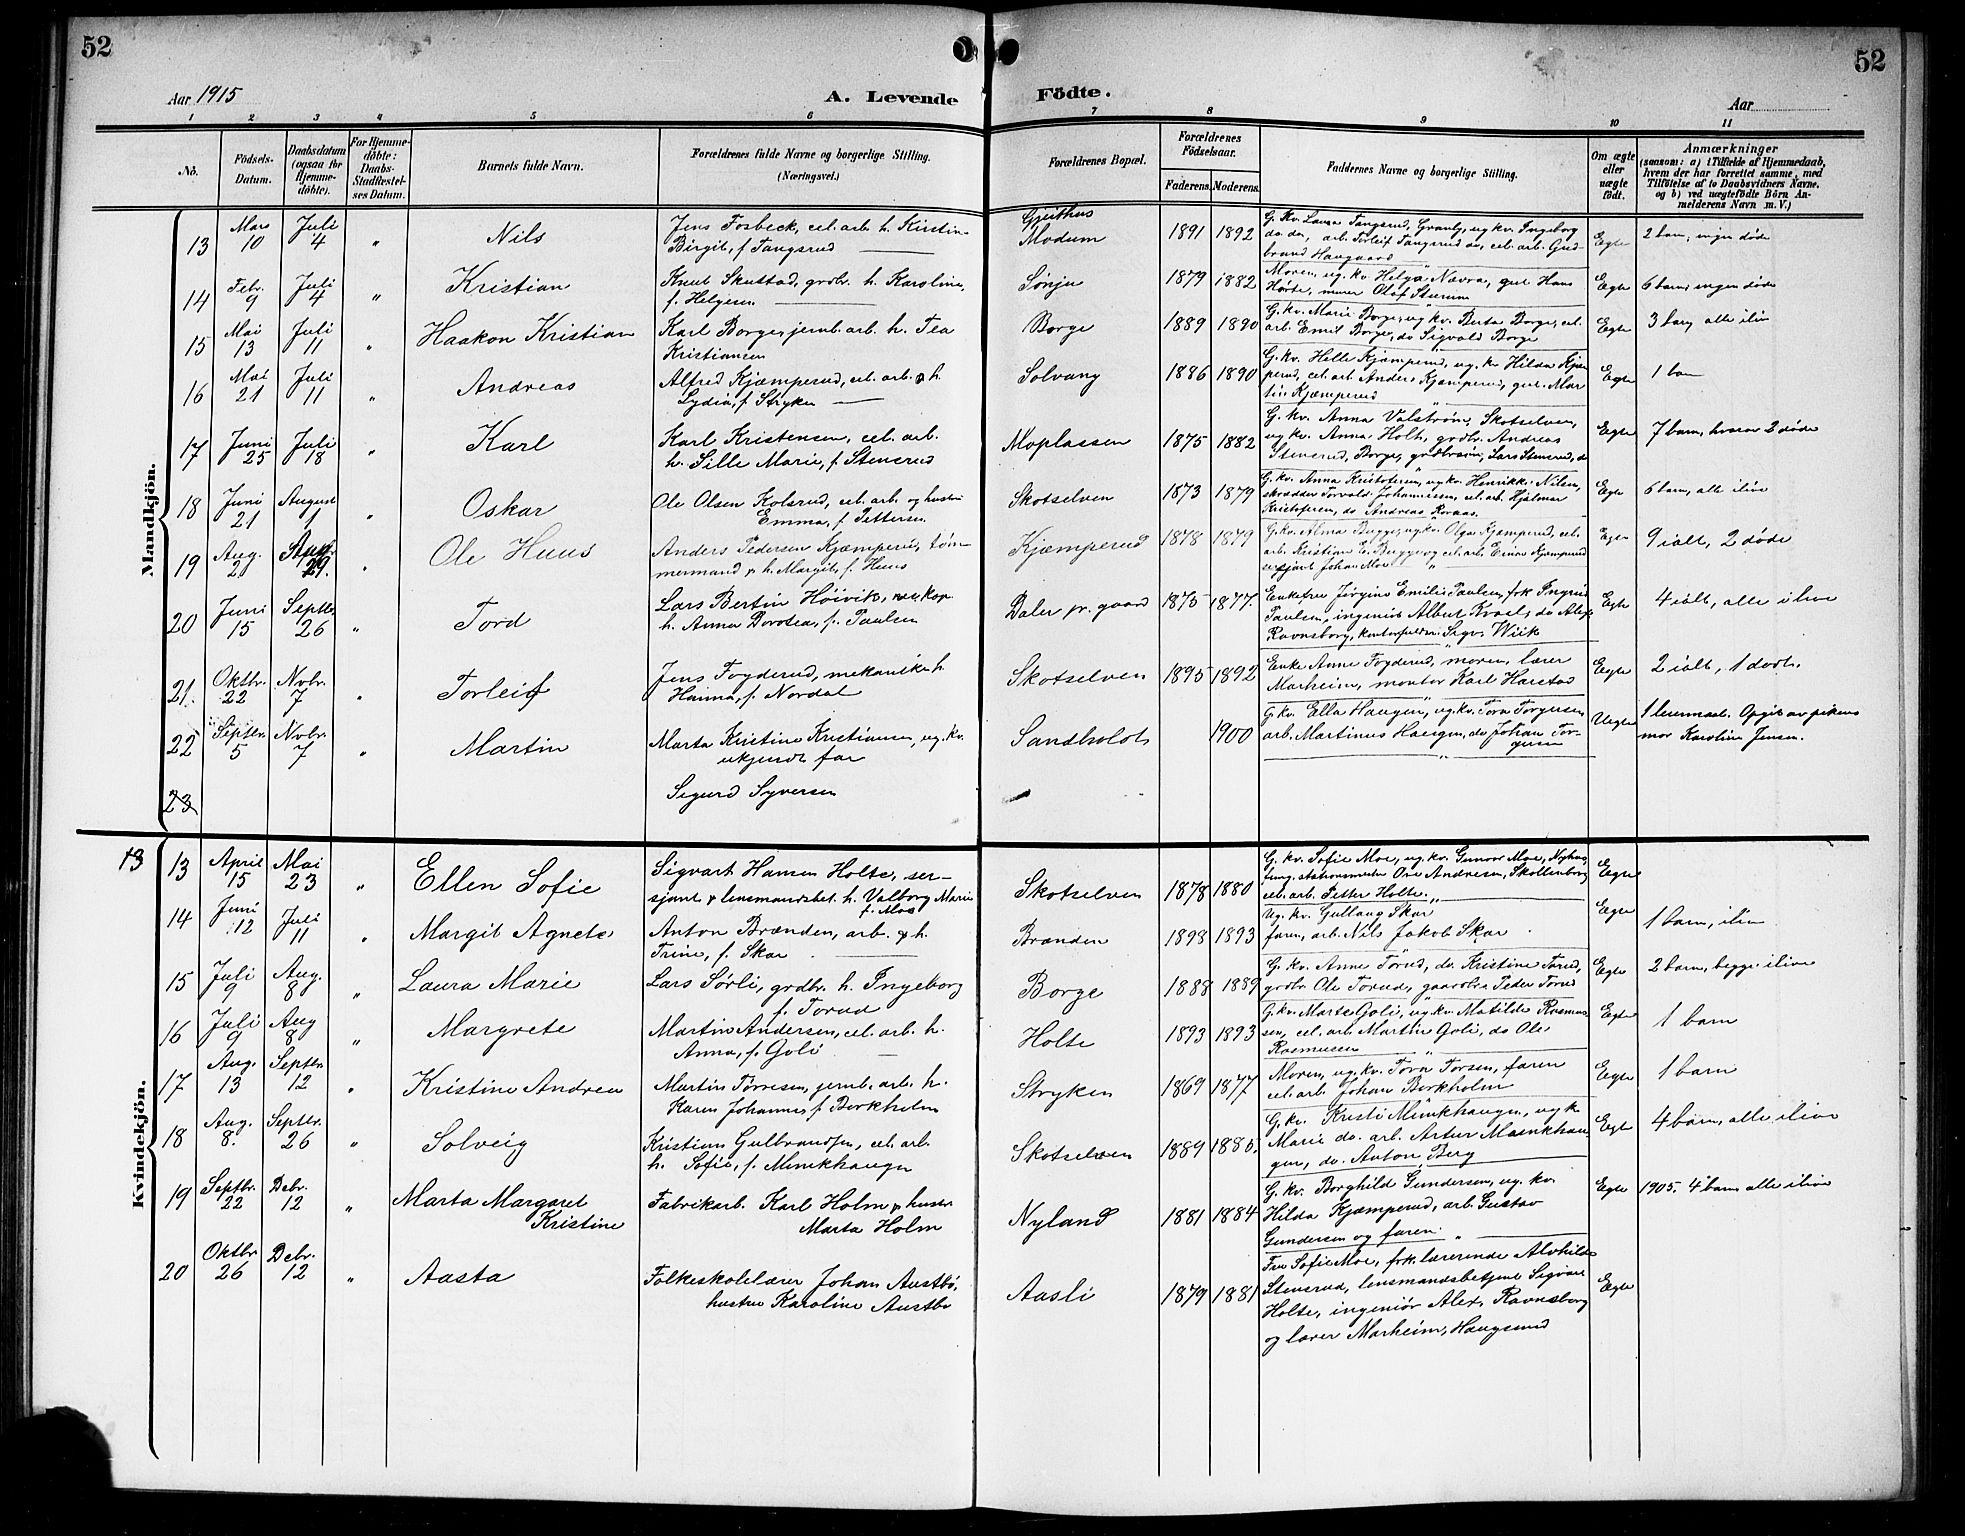 52
52
Aar 1915
A. Levende
Födte.
Aar
1 2 3 4 5 6 7 8 9 10 11
No.
Födsels-
Datum.
Daabsdatum
(ogsaa for
Hjemme-
döbte).
For Hjemme-
döbte:
Daabs-
Stadfæstel-
ses Datum.
Barnets fulde Navn.
Forældrenes fulde Navne og borgerlige Stilling.
(Næringsvei.)
Forældrenes Bopæl.
Forældrenes
Födselsaar.
Faderens. Moderens.
Faddernes Navne og borgerlige Stilling.
Om ægte
eller
uægte
födt.
Anmærkninger
(saasom: a) i Tilfælde af Hjemmedaab,
hvem der har forrettet samme, med
Tilföielse af to Daabsvidners Navne,
og b) ved uægtefödte Börn An-
melderens Navn m. V.)
Mandkjön.
13 Mars 10 Juli 4 " Nils
Jens Fosbeck, cel. arb. h. Kirstin
Birgit, f. Tangsrud
Gjeithus
Modum 1891 1892
G. kv. Laura Tangsrud, Granly, ug. kv. Ingeborg
do do, arb. Torleif Tangsrud do, cel. arb. Gud-
brand Haugaard
Egte 2 barn, ingen døde
14 Febr. 9 Juli 4 " Kristian
Knut Skuttad, grdbr. h. Karoline,
f. Helgesen
Sønju 1879 1882
Moren, ug. kv. Helga Nævra, gut Hans
Holte, murer Olof Sturum
Egte 6 barn, ingen døde
15 Mai 13 Juli 11 " Haakon Kristian
Karl Borge, jernb. arb. h. Tea
Kristiansen
Borge 1889 1890
G. kv. Marie Borge, ug. kv. Berta Borge, cel.
arb. Emil Borge, do Sigvald Borge
Egte 3 barn, alle ilive
16 Mai 21 Juli 11 " Andreas
Alfred Kjæmperud, cel. arb. & h.
Lydia, f. Stryken
Solvang 1886 1890
G. kv. Helle Kjæmperud, ug. kv. Hilda Kjæm-
perud, cel. arb. Anders Kjæmperud, gut Mar
tin Kjæmperud
Egte 1 barn
17 Juni 25 Juli 18 " Karl
Karl Kristensen, cel. arb.
h. Sille Marie, f. Stensrud
Moplassen 1875 1882
G. kv. Anna Valstrøm, Skotselven,
ug. kv. Anna Holth, grdbr. Andreas
Stensrud, Borge, grdbrsøn, Lars Stensrud, do
Egte 7 barn, hvorav 2 døde
18 Juni 21 August 1 " Oskar
Ole Olsen Kolsrud, cel. arb. og hustru
Emma, f. Pettersen
Skotselven 1873 1879
G. kv. Anna Kristofersen, ug. kv. Henrikke Nilsen,
skrædder Torvald Johannessen, cel. arb. Hjalmar
Kristofersen, do Andreas Roraas
Egte 6 barn, alle ilive
19 Aug. 2 Aug. 29. " Ole Huus
Anders Pedersen Kjæmperud, tøm-
mermand & h. Margit, f. Huus
Kjæmperud 1878 1879
G. kv. Alma Bugge, ug. kv. Olga Kjæmperud, cel.
arb. Kristian E. Bugge og cel. arb. Einar Kjæmperud
sersjant Johan Moe
Egte 9 ialt, 2 døde
20 Juni 15 Septbr. 26 " Tord
Lars Bertin Höivik,
h. Anna Dorotea, f. Paulsen
Daler pr. gaard 1875 1877.
Enkefru Jörgine Emilie Paulsen, frk Ingrid
Paulsen, ingeniör Albert Kvael, do Alex
Ravnsborg, kontorfuldm. Sigv. Wiik
Egte 4 ialt, alle ilive
21. Oktbr. 22 Nvbr. 7 " Torleif
Jens Fogderud, mekaniker h.
Hanna, f. Nordal
Skotselven 1895 1892
Enke Anne Fogderud, moren, lærer
Marheim, montør Karl Harstad
Egte 2 ialt, 1 dødt.
22 Septbr. 5 Nvbr. 7 " Martin
Marta Kristine Kristiansen, ug. kv.
ukjendt far
Sandholdt 1900
G. kv. Ella Haugen, ug. kv. Tora Torgersen
arb. Martinus Haugen, do Johan Tor-
gersen
Uegte 1 leiermaal. Opgit av pikens
mor Karoline Jensen.
23
Sigurd Syversen
Kvindekjön.
13 13 April 15 Mai 23 " Ellen Sofie
Sigvart Hansen Holte, ser-
sjant & lensmandsbet. h. Valborg Marie
f. Moe
Skotselven 1878 1880
G. kv. Sofie Moe, ug. kv. Gunvor Moe, Nyhus,
fung. stationsmester Ole Andresen, Skollenborg
cel. arb. Petter Holte.
Egte
14 Juni 12 Juli 11 " Margit Agnete
Anton Brænden, arb. & h.
Trine, f. Skar
Brænden 1893 1893
Ug. kv. Gullaug Skar
faren, arb. Nils Jakob Skar
Egte 1 barn, ilive
15 Juli 9 Aug. 8 " Laura Marie
Lars Sørli, grdbr. h. Ingeborg
f. Torud
Borge 1888 1889
G. kv. Anne Torud, do. Kristine Torud,
grdbr Ole Torud, gaardbr. Peder Torud
Egte 2 barn, begge ilive
16 Juli 9 Aug 8 " Margrete
Martin Andersen, cel. arb. h.
Anna, f. Goli
Holte 1893 1893
G. kv. Marte Goli, ug. kv. Matilde Rasmus
sen, cel. arb. Martin Goli, do Ole
Rasmussen
Egte 1 barn
17 Aug. 13 Septbr 12 " Kristine Andrea
Martin Torresen, jernb. arb. h.
Karen Johanne, f. Borkholm
Stryken 1869 1877
Moren, ug. kv. Tora Torsen, faren
cel. arb. Johan Borkholm
Egte 1 barn
18 Aug. 8. Septbr. 26 " Solveig
Kristian Gulbrandsen, cel. arb.
h. Sofie, f. Munkhaugen
Skotselven 1889 1885.
G. kv. Kristi Munkhaugen, ug. k
Marie do. arb. Artur Munkhau-
gen, do. Anton Berg
Egte 4 barn, alle ilive
19 Septbr. 22 Debr. 12 " Marta Margaret
Kristine
Fabrikarb. Karl Holm & hustru
Marta Holm
Nyland 1881 1884
G. kv. Borghild Gundersen, ug. kv.
Hilda Kjæmperud, arb. Gustav
Gundersen og faren.
Egte 1905. 4 barn, alle ilive
20 Oktbr 26 Debr. 12 " Aasta
Folkeskolelærer Johan Austbö,
hustru Karoline Austbö
Aasli 1879 1881
Fru Sofie Moe, frk. lærerinde Alvhilde
Stensrud, lensmandsbetjent Sigvart
Holte, ingeniör Alex. Ravnsborg
og lærer Marheim, Haugsund
Egte